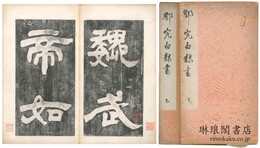 魏武
帝如
鄧完白隸書
鄧完白隸書
琳琅閣書店
rinrokaku.co.jp